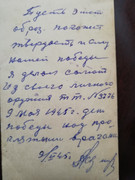 Пусть этот
образ покажет
твердость и силу
нашей победы
Я делаю салют
из своего личного
оружия тт. №
9 мая 1945г. день
победы над про
клятыми врагами